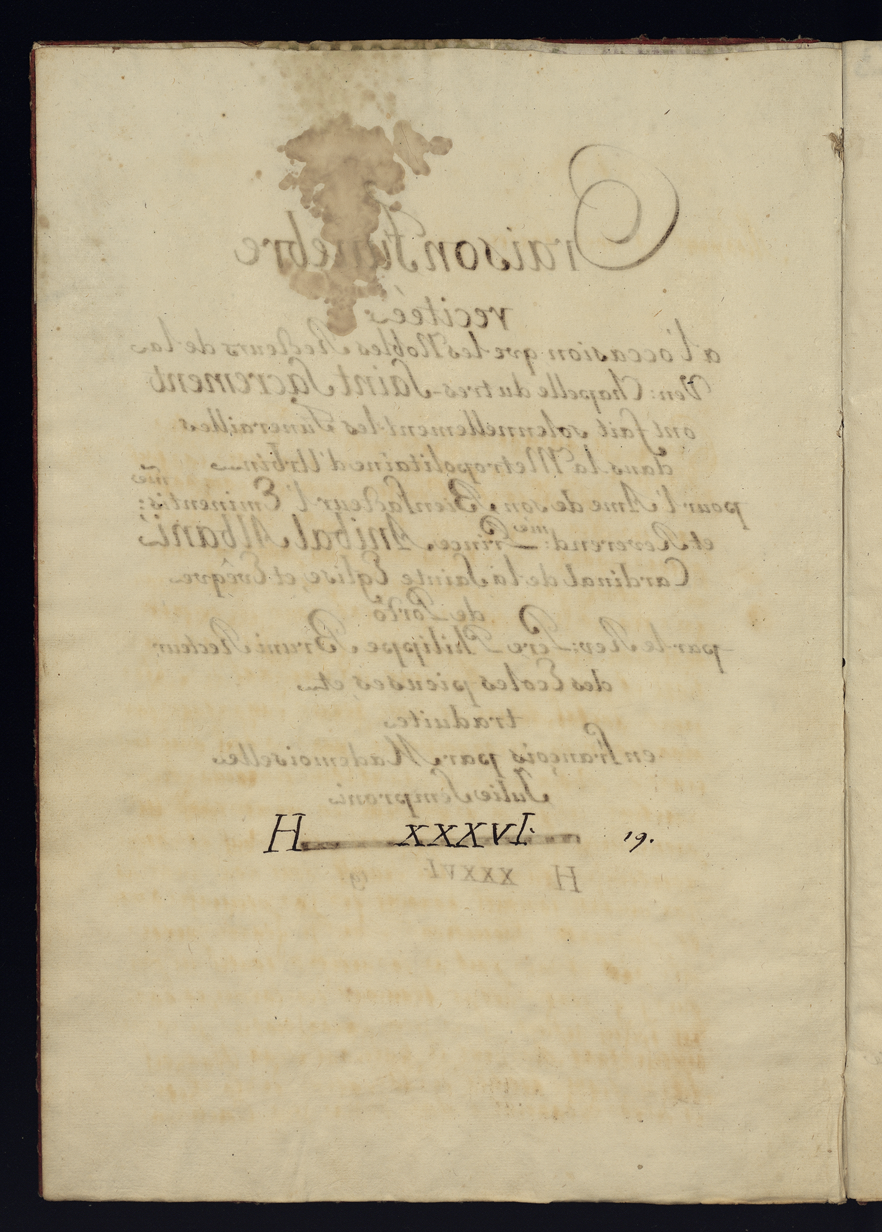 Oraison funebre
recitée
a l'occasion que les Nobles Recteurs de la
Ven: Chapelle du tres Saint Sacrement
ont fait solennellement les Funerailles
dans la Metropolitaine d'Urbin
pour l'Ame de son Bienfacteur l'Eminentis:me
et Reverend:me Prince Anibal Albani
Cardinal de la Sainte Eglise, et Evêque
de Porto
par le Rev: Pere Philippe Bruni Recteur
des Ecoles pieuses, etc
traduite
en françois par Mademoiselle
Julie Semproni
H XXXVI. 19.
H XXXVI. 19.